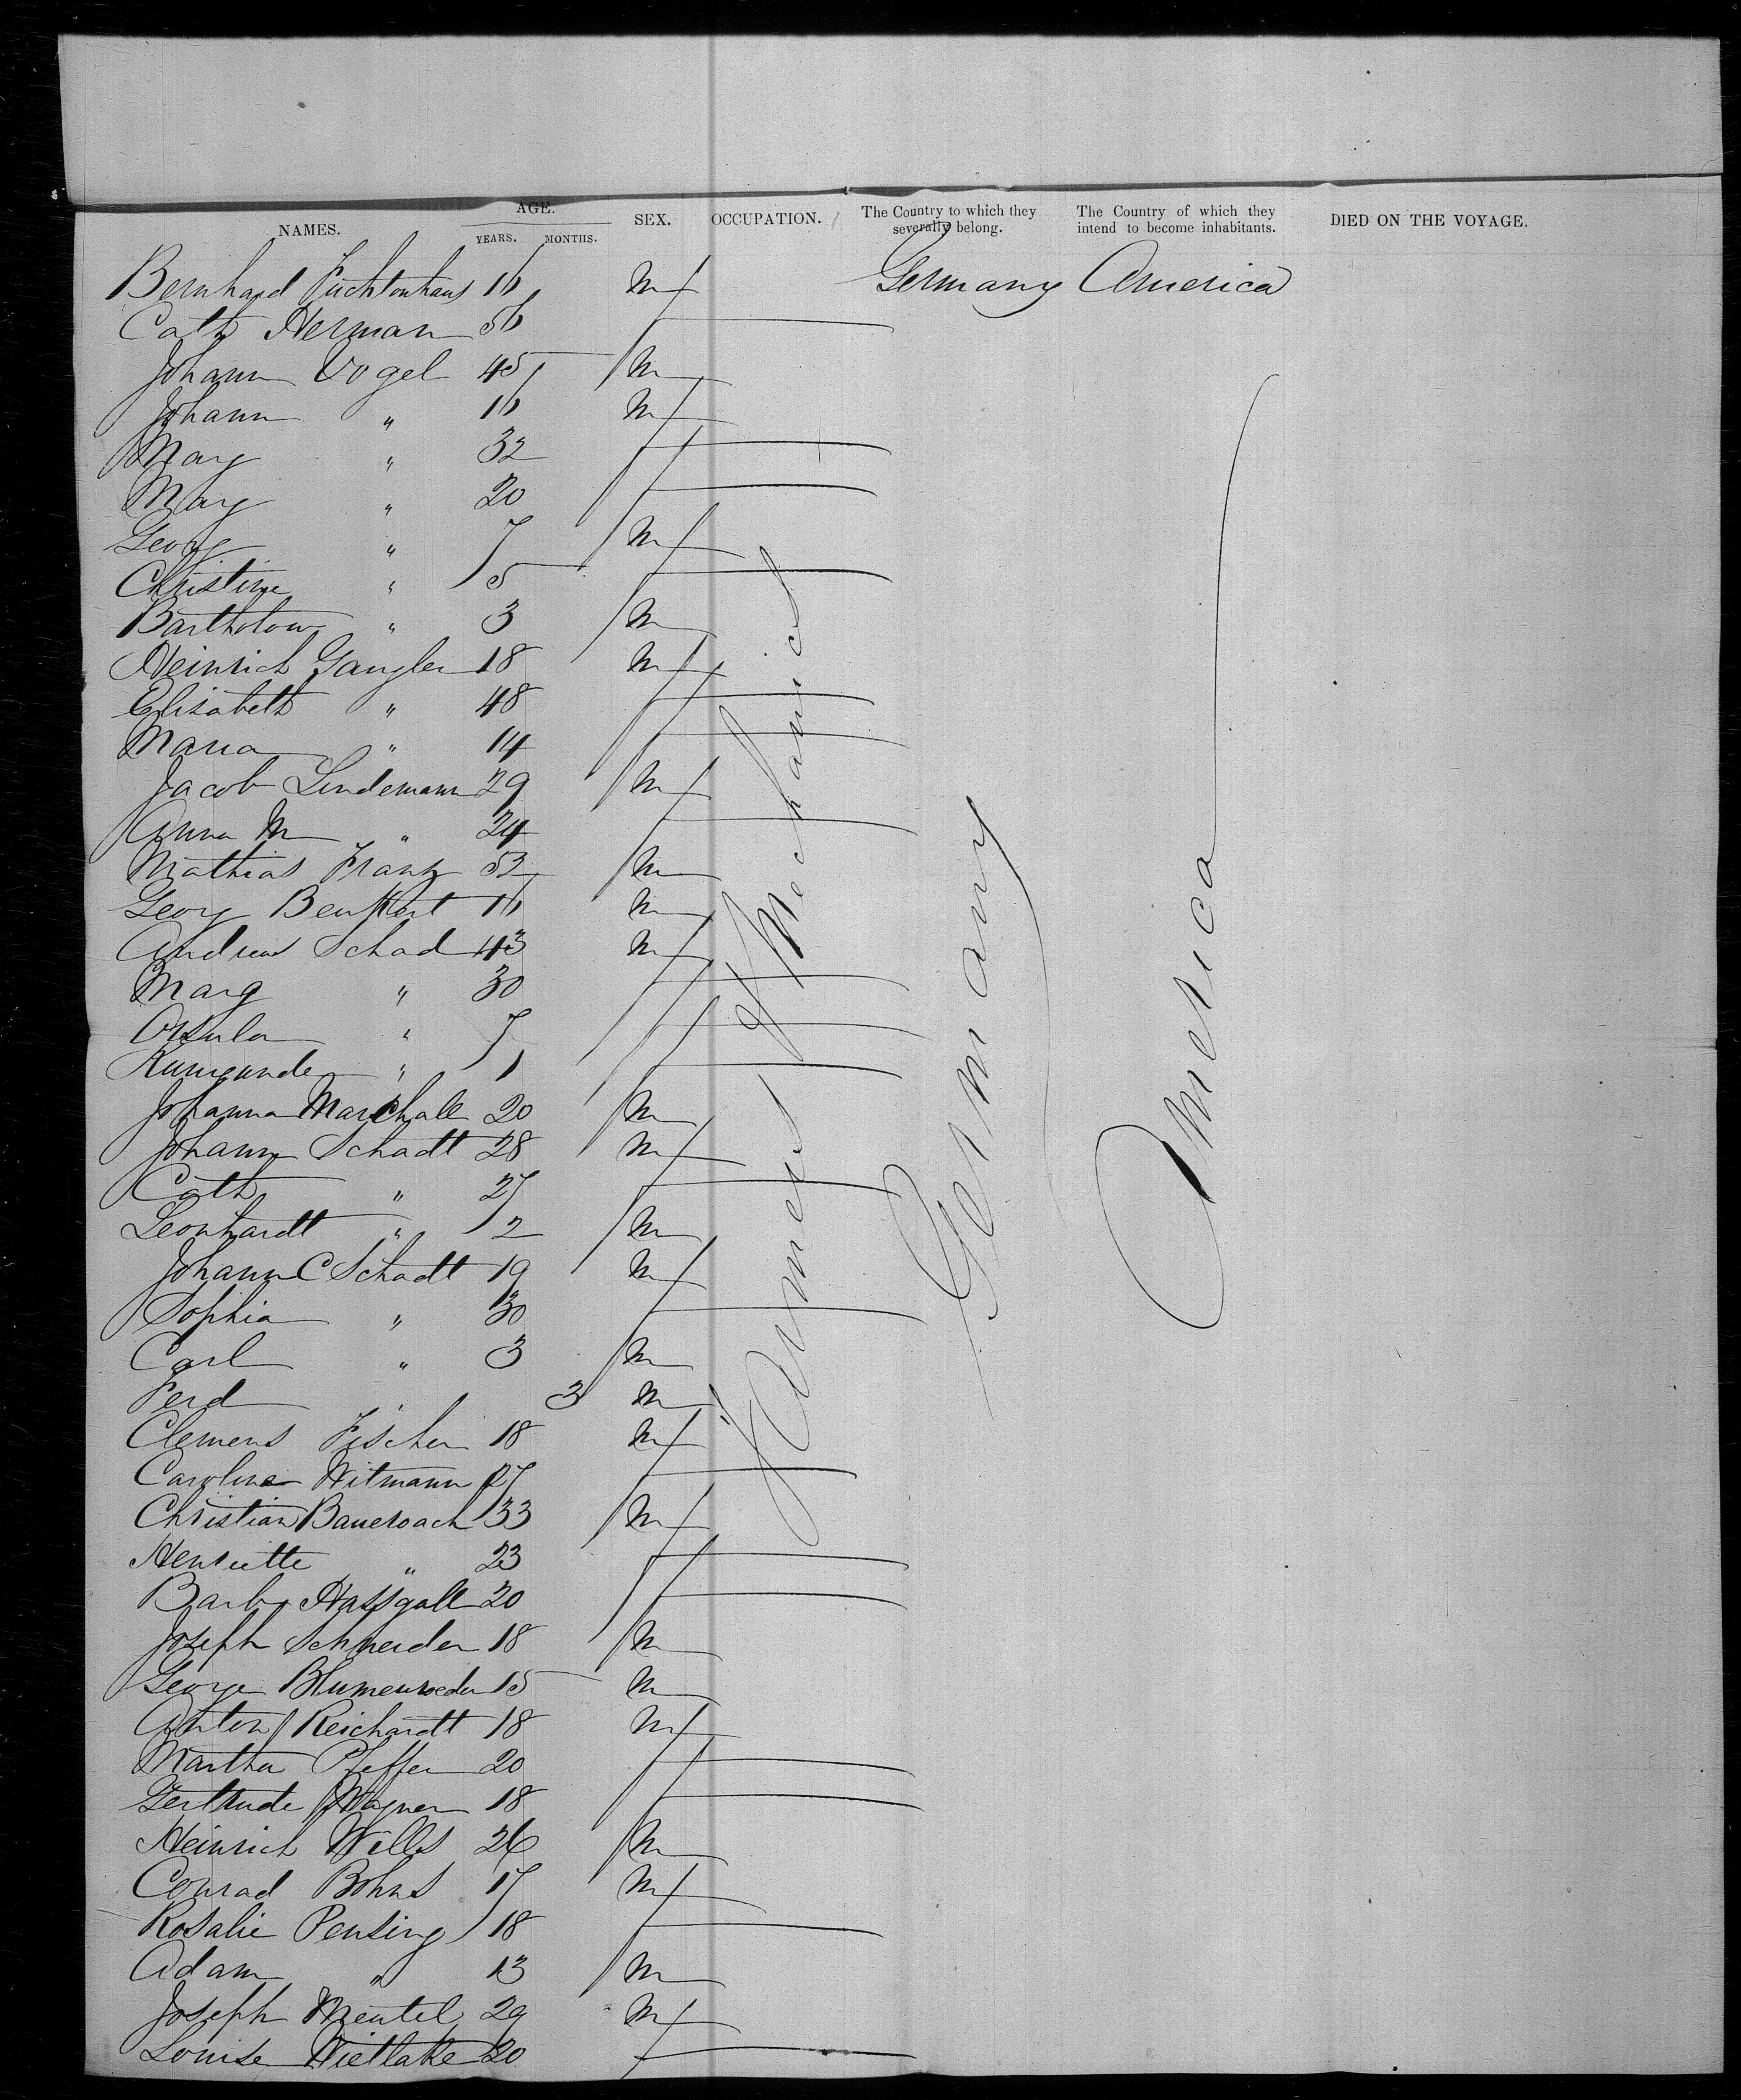 NAMES. AGE. YEARS. MONTHS. SEX. OCCUPATION. The Country to which they severally belong. The Country of which they intend to become inhabitants. DIED ON THE VOYAGE.
Bernhard Fuchtenhans 16 m Germany America
Cath Herman 56 f
Johann Vogel 45 m
Johann " 16 m
Mary " 32 f
Mary " 20 f
Georg " 7 m
Christine " 5 f
Bartholom " 3 m
Heinrich Gangler 18 m
Elisabeth " 48 f
Maria " 14 f
Jacob Lindemann 29 m
Anna M " 24 f
Mathias Frank 52 m
Georg Benkert 16 m
Andreas Schad 43 m
Marg " 30 f
Ursula " 7 f
Kunigunde " 1 f
Johanna Marschall 20 m
Johann Schadt 28 m
Cath " 27 f
Leonhardt " 2 m
Johann C Schadt 19 m
Sophia " 30 f
Carl " 3 m
Ferd " 3 m
Clemens Fischer 18 m
Caroline Witmann 27 f
Christian Bauersach 33 m
Henriette " 23 f
Barb Hassgall 20 f
Joseph Schneider 18 m
George Blumenroeder 15 m
Anton Reichardt 18 m
Martha Pfeffer 20 f
Gertrude Wagner 18 f
Heinrich Wills 26 m
Conrad Bohns 17 m
Rosalie Pensing 18 f
Adam " 13 m
Joseph Mentel 29 m
Louise Wietlake 20 f
Farmers & Mechanics
Germany
America